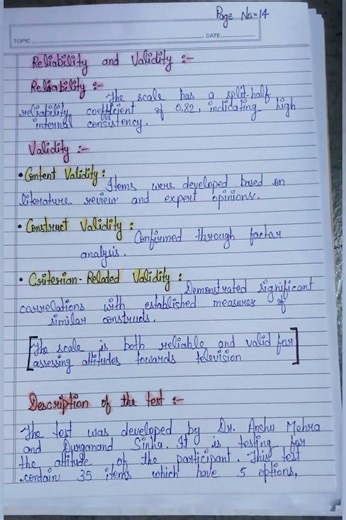 Page No-14
TOPIC
DATE
Reliability and Validity :-
Reliability :-
The scale has a split-half
reliability coefficient of 0.82, indicating high
internal consistency.
Validity :-
• Content Validity :
Items were developed based on
literature review and expert opinions.
• Construct Validity :
Confirmed through factor
analysis.
• Criterian-Related Validity :
Demonstrated significant
correlations with established measures of
similar constructs.
[The scale is both reliable and valid for
assessing attitudes towards television]
Description of the test :-
The test was developed by Dr. Anshu Mehra
and Durganand Sinha. It is testing for
the attitude of the participant. This test
contain 35 items which have 5 options,